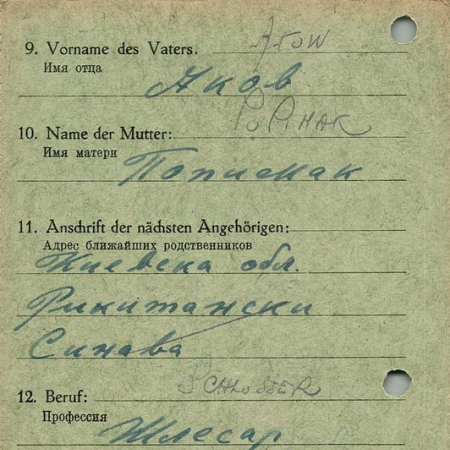 9. Vorname des Vaters.
Имя отца
Яков
10. Name der Mutter:
Имя матери
11. Anschrift der nächsten Angehörigen:
Адрес ближайших родственников
Киевска обл.
Рикитански
Синава
SCHLOSSER
12. Beruf:
Профессия
Шлесар